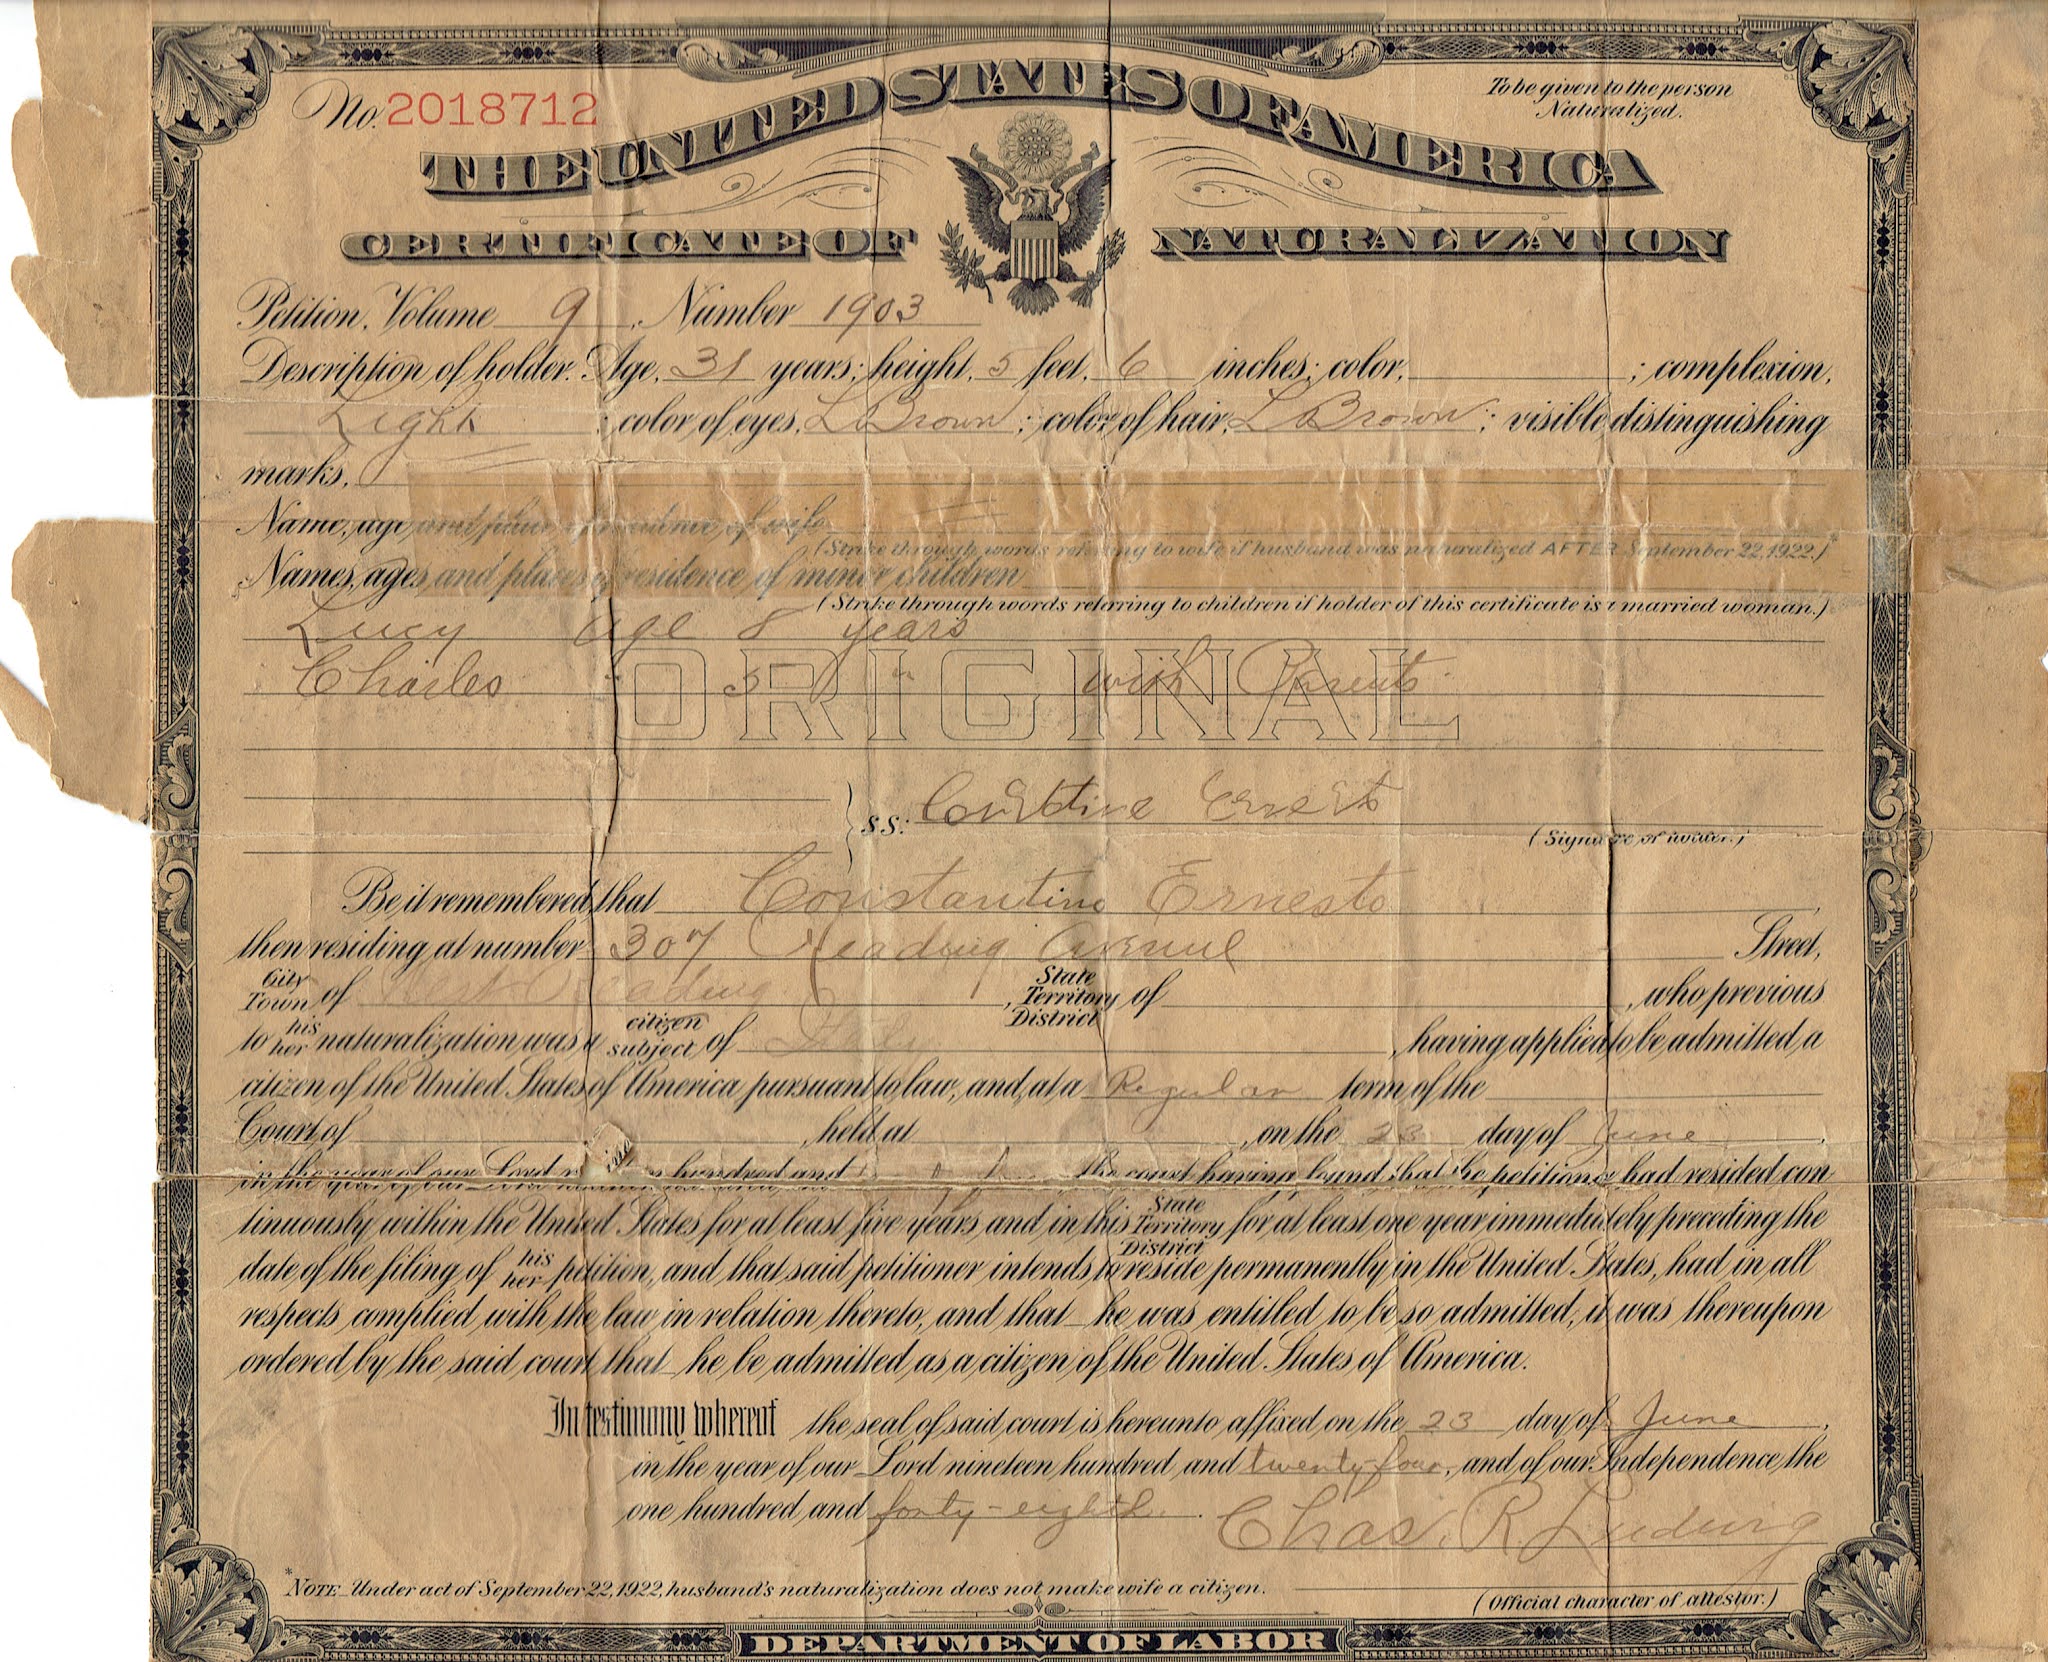 No. 2018712
To be given to the person
Naturalized.
THE UNITED STATES OF AMERICA
CERTIFICATE OF NATURALIZATION
Petition, Volume 9, Number 1903
Description of holder. Age, 31 years; height, 5 feet, 6 inches; color, ; complexion,
Light ; color of eyes, L Brown ; color of hair, L Brown ; visible distinguishing
marks,
Name, age and place of residence of wife
(Strike through words referring to wife if husband was naturalized AFTER September 22, 1922.)*
Names, ages and places of residence of minor children
(Strike through words referring to children if holder of this certificate is a married woman.)
Lucy age 8 years
Charles " 5 " with Parents
ORIGINAL
S.S.: Ernesto
(Signature of holder.)
Be it remembered, that Constantino Ernesto
then residing at number 307 Reading Avenue Street,
City Town of West Reading, State Territory District of , who previous
to his her naturalization was a citizen subject of Italy, having applied to be admitted a
citizen of the United States of America pursuant to law, and, at a Regular term of the
Court of , held at , on the 23 day of June,
in the year of our Lord nineteen hundred and the court having found that the petitioner had resided con
tinuously within the United States for at least five years and in this State Territory District for at least one year immediately preceding the
date of the filing of his her petition, and that said petitioner intends to reside permanently in the United States, had in all
respects complied with the law in relation thereto, and that he was entitled to be so admitted, it was thereupon
ordered by the said court that he be admitted as a citizen of the United States of America.
In testimony whereof the seal of said court is hereunto affixed on the 23 day of June,
in the year of our Lord nineteen hundred and twenty-four, and of our Independence the
one hundred and forty-eighth.
Chas. R. Ludwig
*NOTE. Under act of September 22, 1922, husband's naturalization does not make wife a citizen.
(Official character of attestor.)
DEPARTMENT OF LABOR